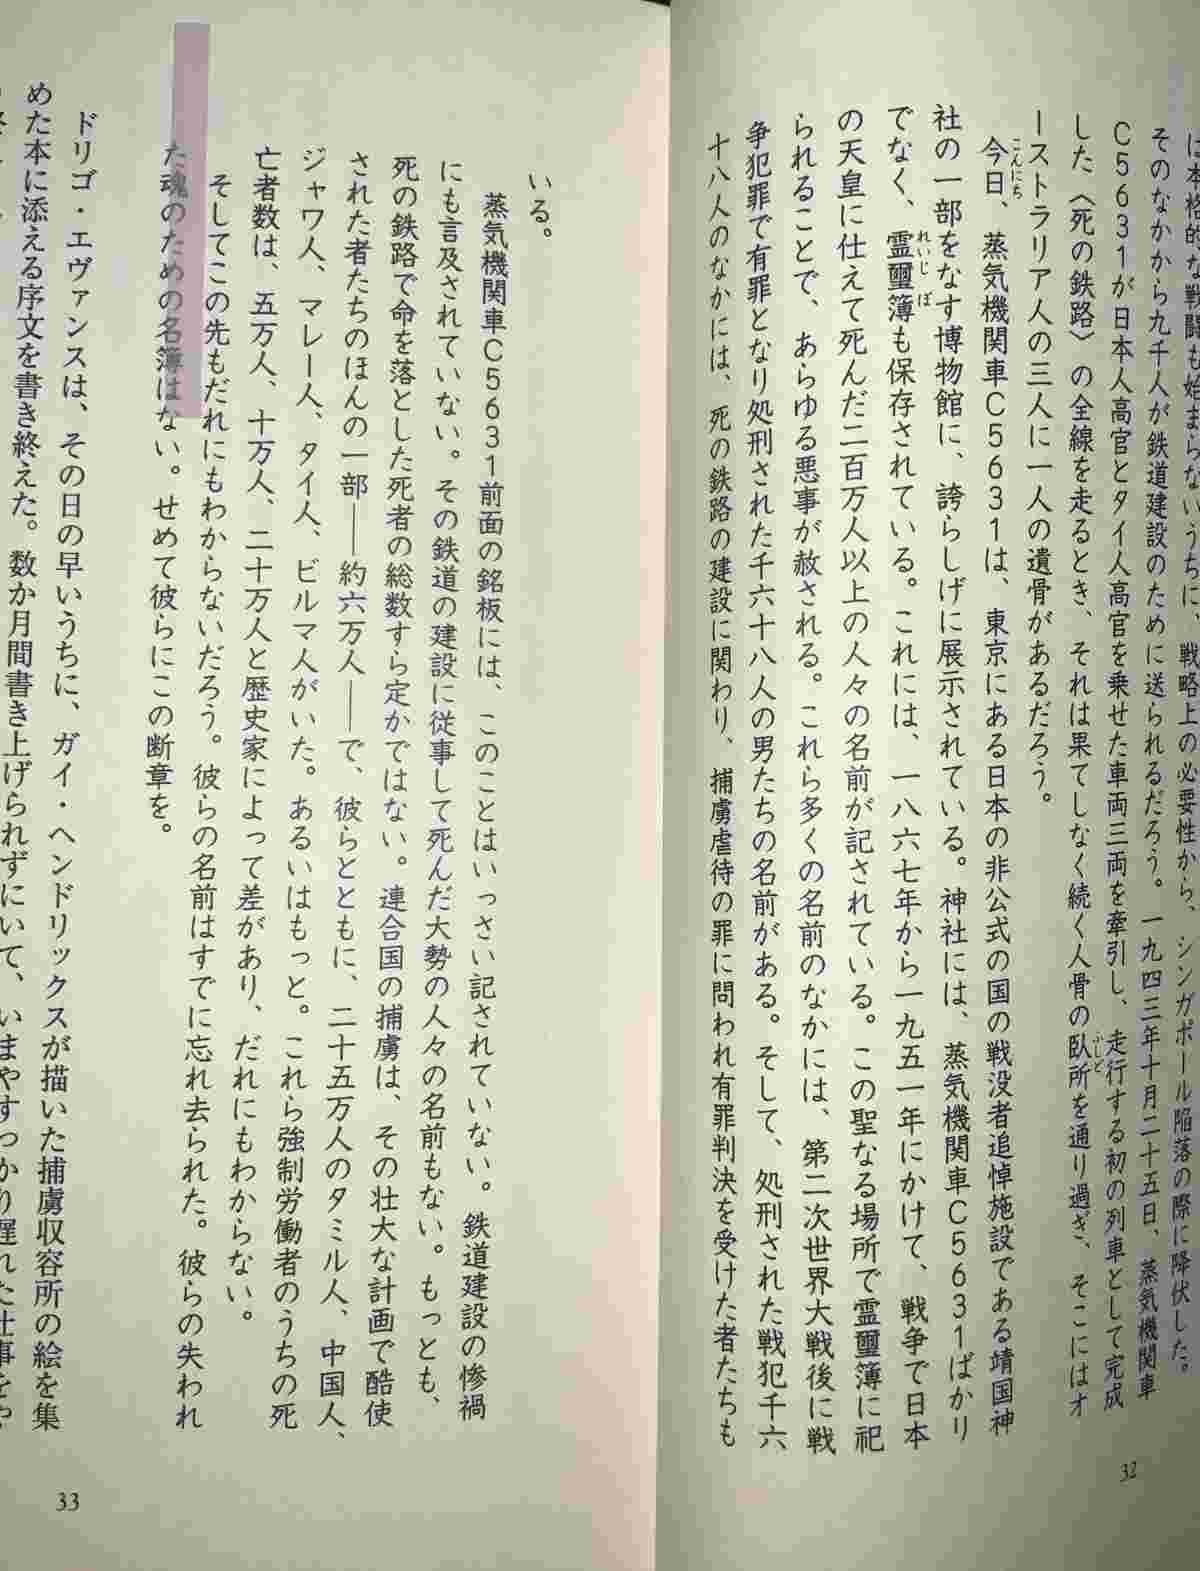 は本格的な戦闘も始まらないうちに、戦略上の必要性から、シンガポール陥落の際に降伏した。
そのなかから九千人が鉄道建設のために送られるだろう。一九四三年十月二十五日、蒸気機関車
C5631が日本人高官とタイ人高官を乗せた車両三両を牽引し、走行する初の列車として完成
した〈死の鉄路〉の全線を走るとき、それは果てしなく続く人骨の臥所を通り過ぎ、そこにはオ
ふしど
ーストラリア人の三人に一人の遺骨があるだろう。
今日、蒸気機関車C5631は、東京にある日本の非公式の国の戦没者追悼施設である靖国神
こんにち
社の一部をなす博物館に、誇らしげに展示されている。神社には、蒸気機関車C5631ばかり
でなく、霊璽簿も保存されている。これには、一八六七年から一九五一年にかけて、戦争で日本
れいじぼ
の天皇に仕えて死んだ二百万人以上の人々の名前が記されている。この聖なる場所で霊璽簿に祀
られることで、あらゆる悪事が赦される。これら多くの名前のなかには、第二次世界大戦後に戦
争犯罪で有罪となり処刑された千六十八人の男たちの名前がある。そして、処刑された戦犯千六
十八人のなかには、死の鉄路の建設に関わり、捕虜虐待の罪に問われ有罪判決を受けた者たちも
32
いる。
蒸気機関車C5631前面の銘板には、このことはいっさい記されていない。鉄道建設の惨禍
にも言及されていない。その鉄道の建設に従事して死んだ大勢の人々の名前もない。もっとも、
死の鉄路で命を落とした死者の総数すら定かではない。連合国の捕虜は、その壮大な計画で酷使
された者たちのほんの一部――約六万人――で、彼らとともに、二十五万人のタミル人、中国人、
ジャワ人、マレー人、タイ人、ビルマ人がいた。あるいはもっと。これら強制労働者のうちの死
亡者数は、五万人、十万人、二十万人と歴史家によって差があり、だれにもわからない。
そしてこの先もだれにもわからないだろう。彼らの名前はすでに忘れ去られた。彼らの失われ
た魂のための名簿はない。せめて彼らにこの断章を。
ドリゴ・エヴァンスは、その日の早いうちに、ガイ・ヘンドリックスが描いた捕虜収容所の絵を集
めた本に添える序文を書き終えた。数か月間書き上げられずにいて、いまやすっかり遅れた仕事をや
33